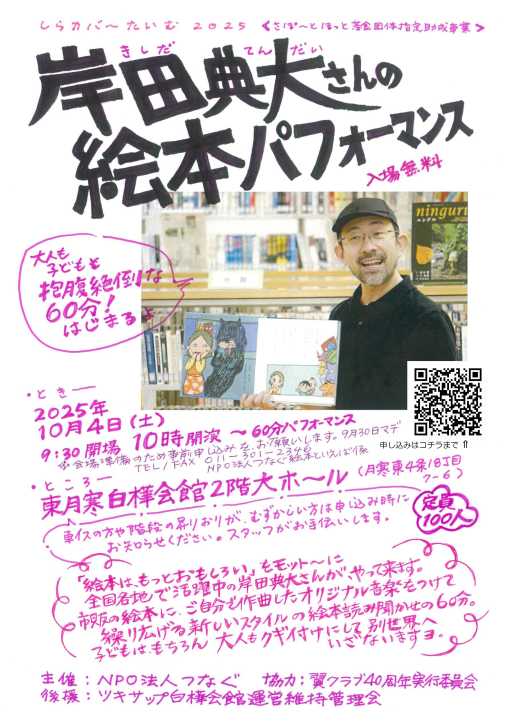 しらカバ〜たいむ 2025 <さぽーとほっと基金団体指定助成事業>
きしだ てんだい
岸田典大さんの
絵本パフォーマンス
入場無料
ninguru
大人も
子どもも
抱腹絶倒な
60分!
はじまるよ
小説
・とき一
2025年
10月4日(土)
9:30開場 10時開演 〜60分パフォーマンス
※会場準備のため事前申し込みをお願いします。9月30日マデ
TEL/FAX 011-301-2346
NPO法人つなぐ絵本といえば係
申し込みはコチラまで⇑
・ところ一
東月寒白樺会館2階大ホール
(月寒東4条18丁目
7-6)
車イスの方や階段の昇りおりが、むずかしい方は申し込み時に
お知らせください。スタッフがお手伝いします。
定員
100人
「絵本は、もっとおもしろい」をモットーに
全国各地で活躍中の岸田典大さんが、やって来ます。
市販の絵本に、ご自分で作曲したオリジナル音楽をつけて
繰り広げる新しいスタイルの絵本読み聞かせの60分。
子どもはもちろん 大人もクギ付けにして別世界へ
いざないますヨ。
主催:NPO法人つなぐ 協力:翼クラブ40周年実行委員会
後援:ツキサップ白樺会館運営維持管理会